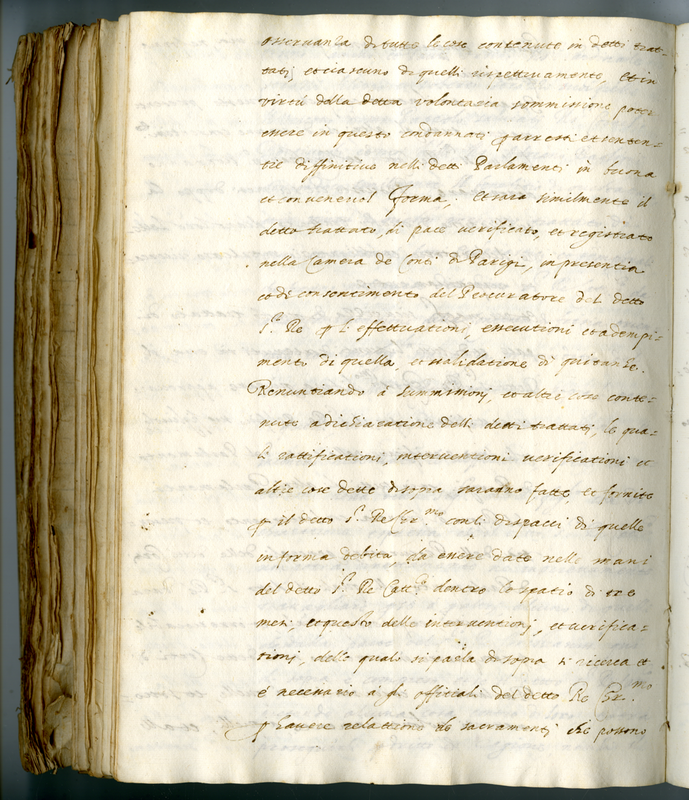 osservanza di tutte le cose contenute in detti trat-
tati, et ciascuno di quelli rispettivamente, et in
virtù della detta volontaria sommissione poter
essere in questo condannati p arresti et senten-
tie diffinitive nelli detti Parlamenti in buona
et convenevol forma; et sarà similmente il
detto trattato di pace verificato, et registrato
nella Camera de Conti di Parigi, in presentia
et di consentimento del Procuratore del detto
S.r Re p l'effettuationi, essecutioni et adempi-
mento di quella, et validatione di quitanze.
Renuntiando à summissioni, et altre cose conte-
nute a dichiaratione delli detti trattati, le qua-
li rattificationi, interventioni verificationi et
altre cose dette di sopra saranno fatte, et fornite
p il detto S.r Re Chr.mo con li dispacci di quelle
in forma debita, da essere date nelle mani
del detto S.r Re Catt.o dentro lo spatio di tre
mesi, et questo delle interventioni, et verifica-
tioni, delle quali si parla di sopra si ricerca et
é necessario à gli officiali del detto Re Chr.mo
p havere relattione de sacramenti che possono